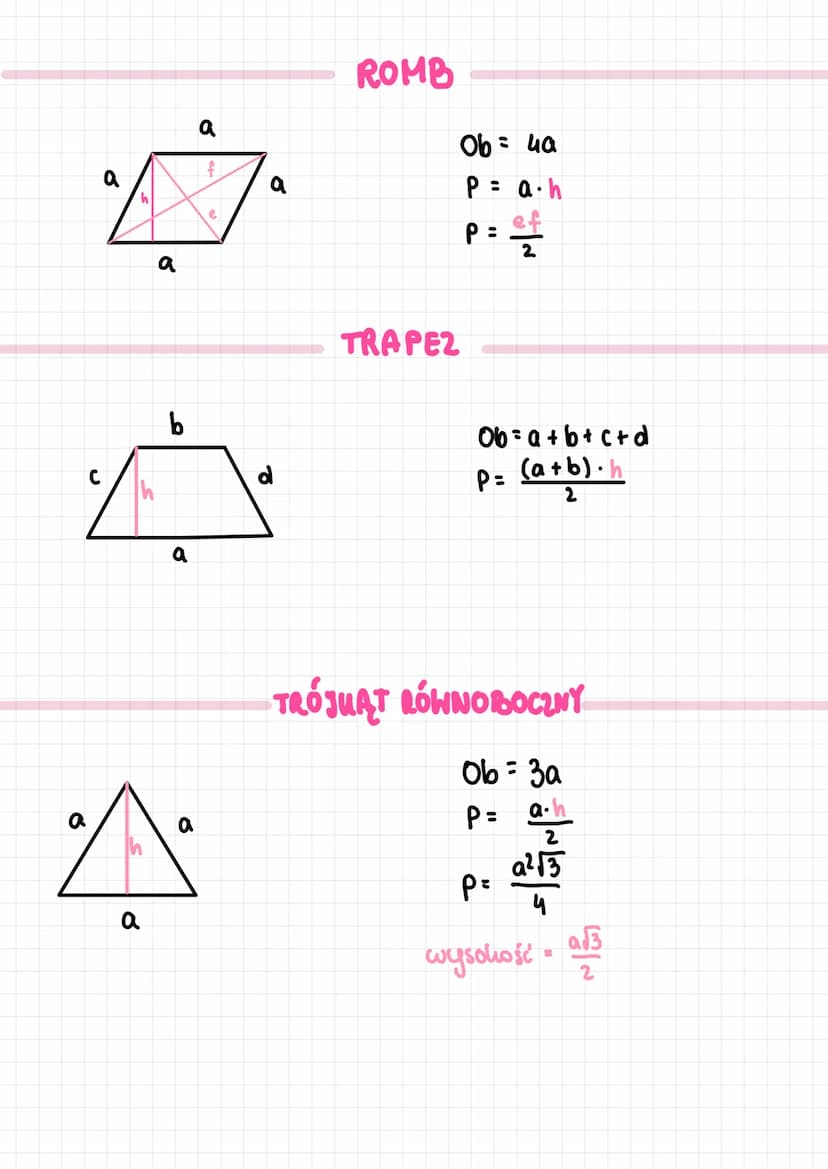 ROMB
a
a
f
a
h
e
a
Ob = 4a
P = a·h
P = ef/2
TRAPEZ
b
c
h
d
a
Ob = a + b + c + d
P = (a + b) · h/2
TRÓJKĄT RÓWNOBOCZNY
a
a
h
a
Ob = 3a
P = a·h/2
P = a²√3/4
wysokość = a√3/2